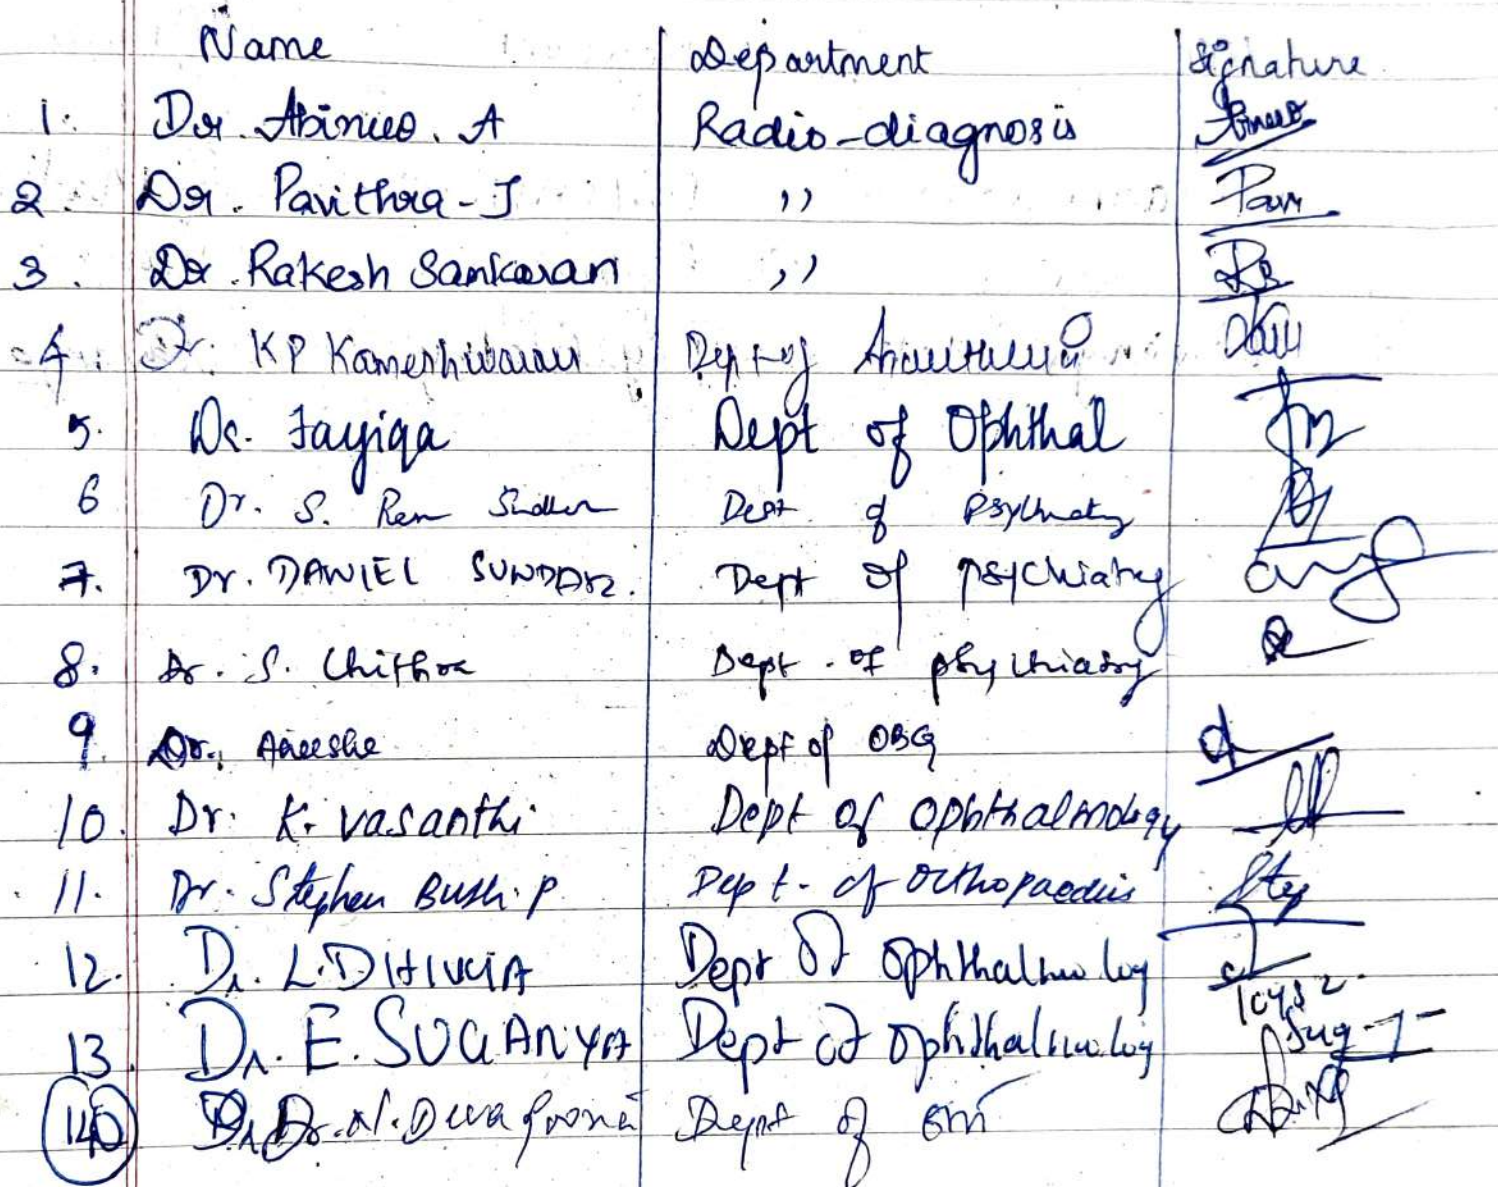 Name Department Signature
1. Dr. Abines. A Radio-diagnosis
2. Dr. Pavithra-J ,, Pavi
3. Dr. Rakesh Sankaran ,,
4. Dr. KP Kameshwaran Dept of
5. Dr. Jayiqa Dept of Ophthal
6 Dr. S. Ram Dept of Psychiatry
7. Dr. DANIEL SUNDAR. Dept of psychiatry
8. Dr. S. Chithra Dept. of phychiatry
9. Dr. Aneesha Dept of OBG
10. Dr. K. Vasanthi Dept of Ophthalmology
11. Dr. Stephen Bush.P Dept. of Orthopaedics Step
12. Dr. L. DHIVYA Dept Of Ophthalmology
13. Dr. E. SUGANYA Dept of Ophthalmology Sug
14 Dr. N. Dept of